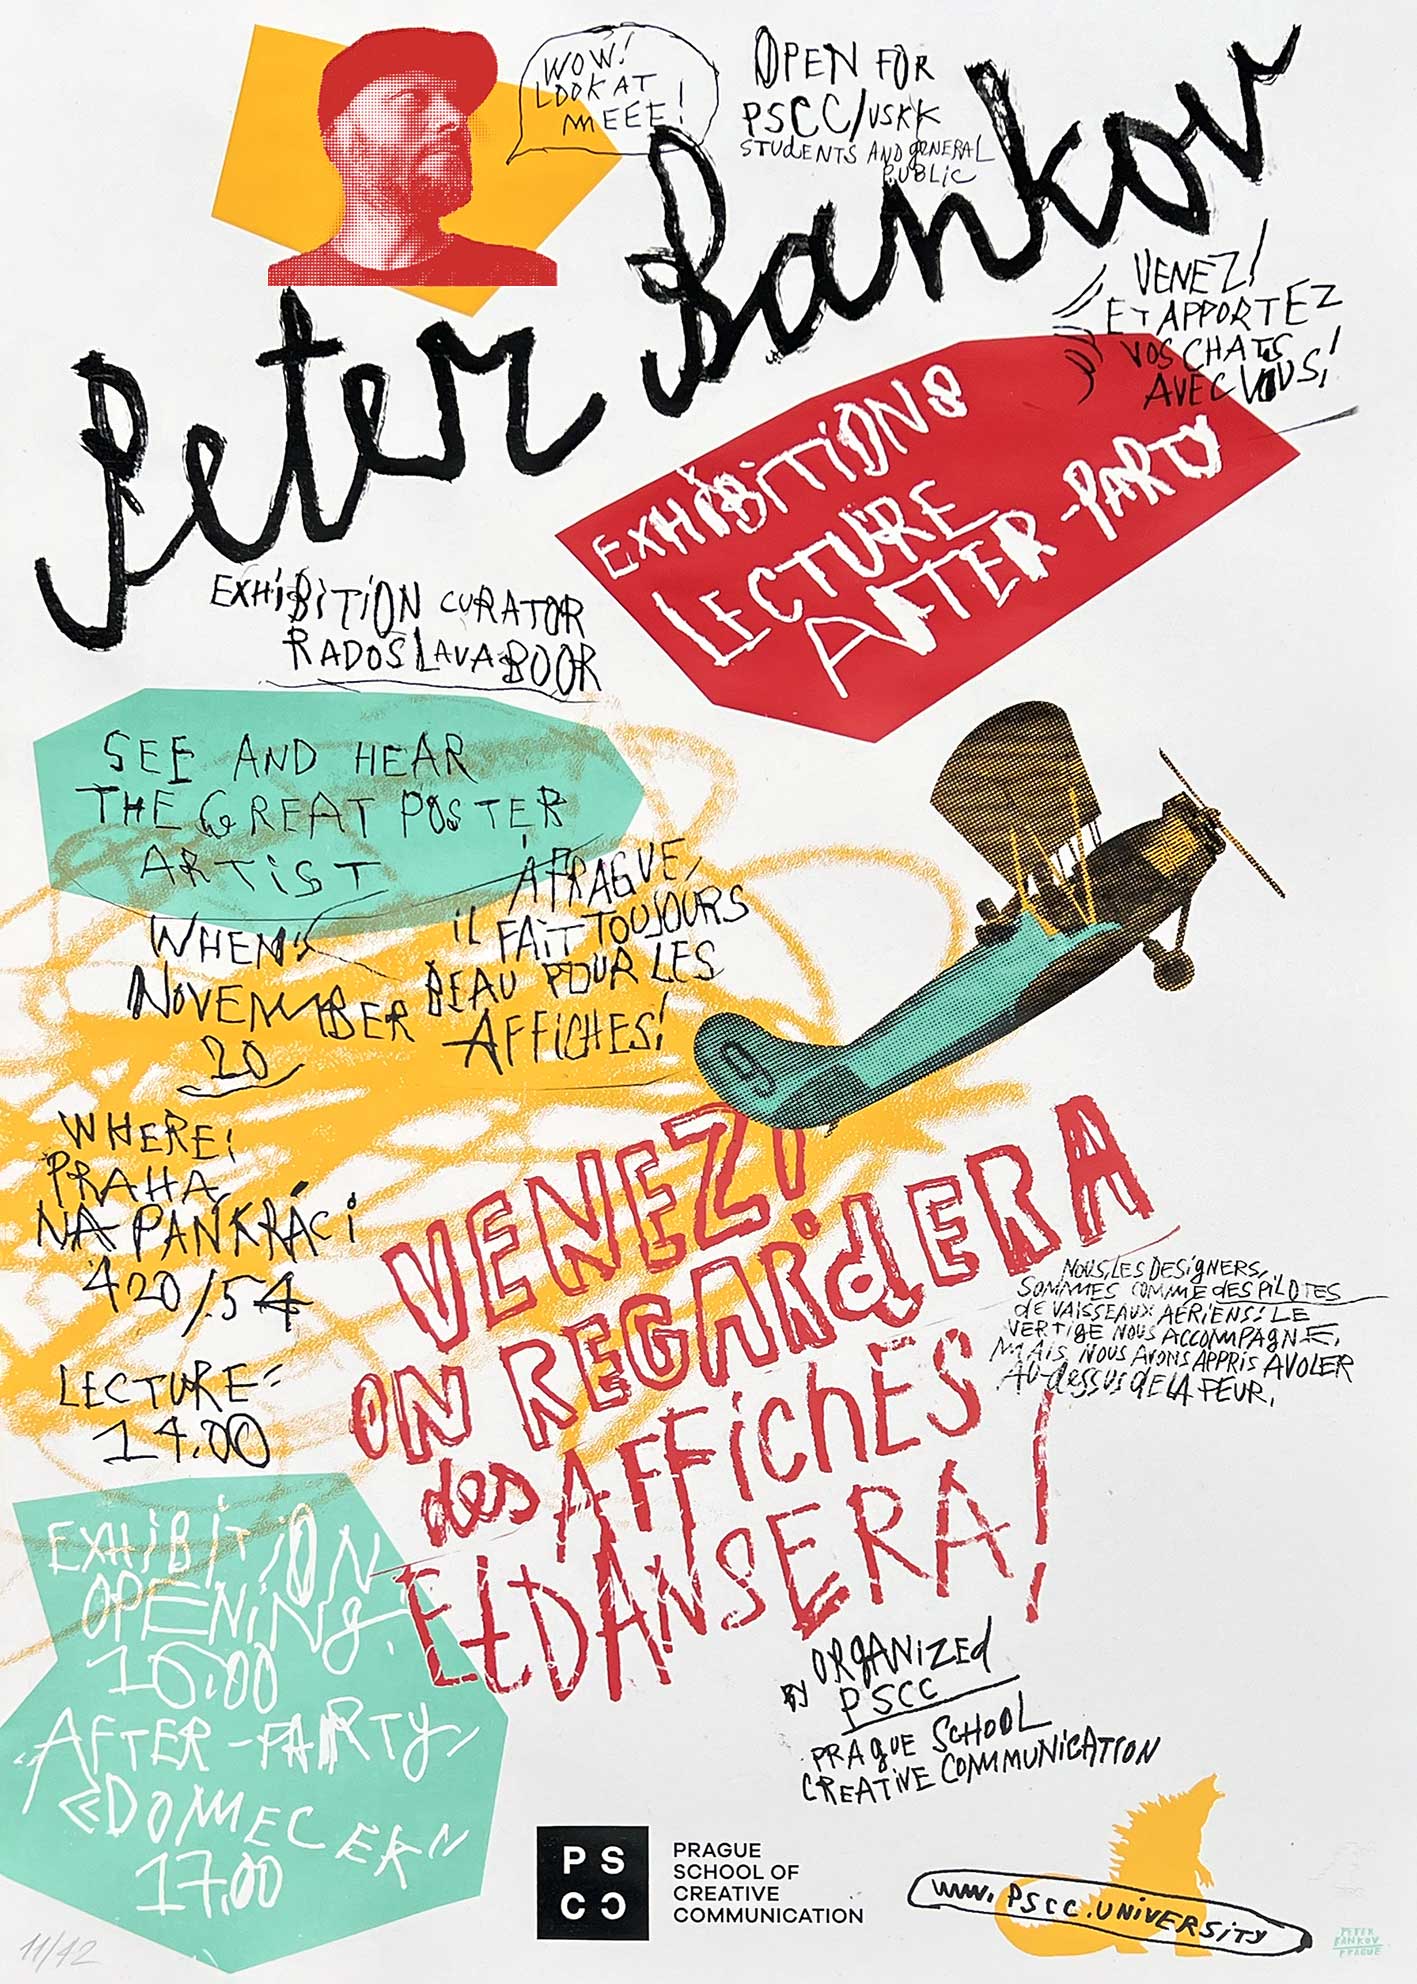 WOW!
LOOK AT
MEEE!
OPEN FOR
PSCC/VSKK
STUDENTS AND gENERAL
PUBLIC
Peter Bankov
VENEZ!
ET APPORTEZ
VOS CHATS
AVEC VOUS!
EXHIBITION &
LECTURE
AFTER-PARTY
EXHIBITION CURATOR
RADOSLAVA BOOR
SEE AND HEAR
THE GREAT POSTER
ARTIST
À PRAGUE,
IL FAIT TOUJOURS
BEAU POUR LES
AFFICHES!
WHEN:
NOVEMBER
20
9
WHERE:
PRAHA,
NA PANKRÁCI
420/54
LECTURE:
14.00
VENEZ!
ON REGARdERA
des AFFichES
Et DANSERA!
NOUS, LES DESIGNERS,
SOMMES COMME dES PILOTES
dE VAISSEAUX AÉRIENS: LE
VERTIGE NOUS ACCOMPAGNE,
MAIS NOUS AVONS APPRIS A VOLER
AU-dessus dE LA PEUR.
EXHIBITION
OPENING:
16.00
AFTER-PARTY,
«DOMECEK»
17.00
ORGANIZEd
BY PSCC
PRAgUE SCHOOL
CREATIVE COMMUNICATION
PS
CC
PRAGUE
SCHOOL OF
CREATIVE
COMMUNICATION
WWW.PSCC.UNIVERSITY
11/42
PETER
BANKOV
PRAGUE